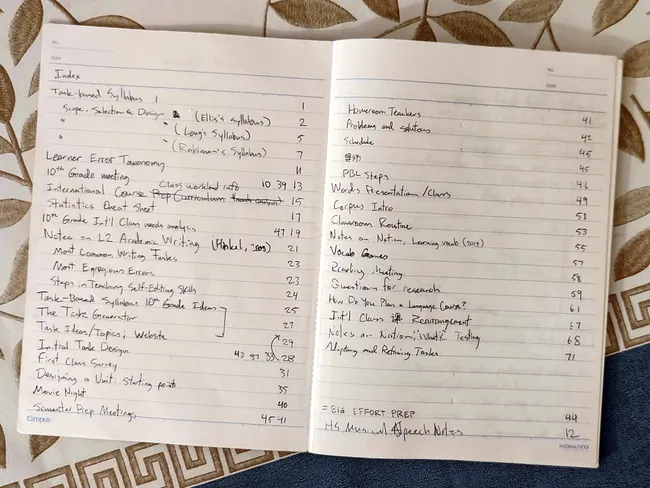 Index
Task-based Syllabus 1 1
Scope, Selection & Design (Ellis's syllabus) 2
" " (Long's Syllabus) 5
" " (Robinson's Syllabus) 7
Learner Error Taxonomy 11
10th Grade meeting Class workload info 10 39 13
International Course Prep Curriculum 15
Statistics Cheat sheet 17
10th Grade Int'l Class needs analysis 47 19
Notes on L2 Academic Writing (Hinkel, 2004) 21
Most Common Writing Tasks 23
Most Egregious Errors 23
Steps in Teaching Self-Editing Skills 24
Task-Based Syllabus 10th Grade Ideas 25
The Task Generator 27
Task Ideas/Topics; Website 29
Initial Task Design 43 37 33 28
First Class Survey 31
Designing a Unit: starting point 35
Movie Night 40
Semester Prep Meetings 45 41
Campus
No.
Date
Homeroom Teachers 41
Problems and solutions 42
Schedule 45
45
PBL Steps 46
Words Presentation/Class 49
Corpus Intro 51
Classroom Routine 53
Notes on Nation, Learning vocab (2013) 55
Vocab Games 57
Reading Meeting 58
Questions for research 59
How Do You Plan a Language Course? 61
Int'l Class 課 Rearrangement 67
Notes on Nation; "What's" Testing 68
Adapting and Refining Tasks 71
= BIG EFFORT PREP 44
HS Musical Speech Notes 12
KOKUYO